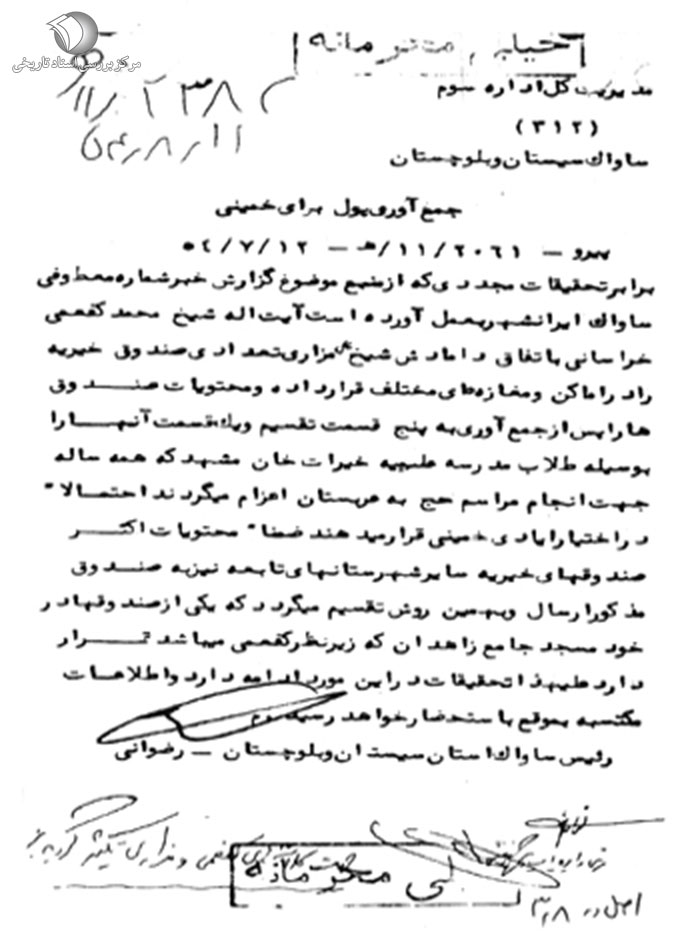 مرکز بررسی اسناد تاریخی
خیلی محرمانه
مدیریت کل اداره سوم
(۳۱۲)
ساواك سیستان و بلوچستان
جمع آوری پول برای خمینی
پیرو – ۲۰۶۱/۱۱/ه – ۵۴/۷/۱۲
برابر تحقیقات مجددی که از منبع موضوع گزارش خبر شماره معطوفی
ساواك ایرانشهر بعمل آورده است آیت اله شیخ محمد کفعمی
خراسانی باتفاق دامادش شیخ مزاری تعدادی صندوق خیریه
را در اماکن و مغازه های مختلف قرار داده و محتویات صندوق
ها را پس از جمع آوری به پنج قسمت تقسیم و یك قسمت آنها را
بوسیله طلاب مدرسه علمیه خیرات خان مشهد که همه ساله
جهت انجام مراسم حج به عربستان اعزام میگردند احتمالا"
در اختیار ایادی خمینی قرار میدهند ضمنا" محتویات اکثر
صندوقهای خیریه سایر شهرستانهای تابعه نیز به صندوق
مذکور ارسال و بهمین روش تقسیم میگردد که یکی از صندوقها در
خود مسجد جامع زاهدان که زیر نظر کفعمی میباشد قرار
دارد علیهذا تحقیقات در این مورد ادامه دارد و اطلاعات
مکتسبه بموقع باستحضار خواهد رسید
رئیس ساواك استان سیستان و بلوچستان – رضوانی
خیلی محرمانه
اصل در ۳۸